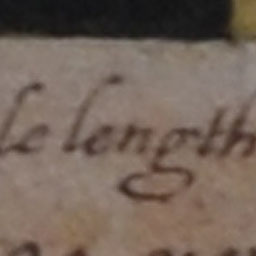 le length